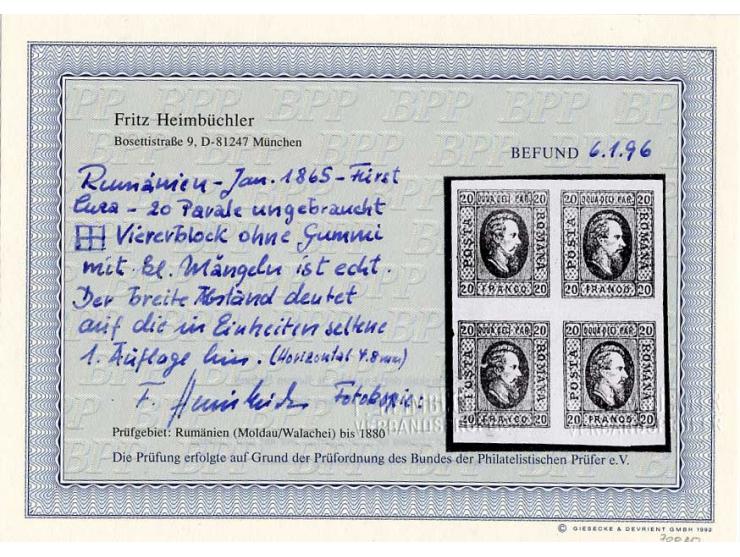 Fritz Heimbüchler
Bosettistraße 9, D-81247 München
BEFUND 6.1.96
Rumänien - Jan. 1865 - Fürst
Cuza - 20 Parale ungebraucht
Viererblock ohne Gummi
mit kl. Mängeln ist echt.
Der breite Abstand deutet
auf die in Einheiten seltene
1. Auflage hin. (Horizontal 4.8mm)
F. Heimbüchler Fotokopie:
20 DOUA DECI PAR 20 20 DOUA DECI PAR 20
POSTA ROMANA POSTA ROMANA
20 FRANCO. 20 20 FRANCO. 20
20 DOUA DECI PAR 20 20 DOUA DECI PAR 20
POSTA ROMANA POSTA ROMANA
20 FRANCO 20 20 FRANCO. 20
Prüfgebiet: Rumänien (Moldau/Walachei) bis 1880
Die Prüfung erfolgte auf Grund der Prüfordnung des Bundes der Philatelistischen Prüfer e.V.
© GIESECKE & DEVRIENT GMBH 1992
BPP BPP BPP BPP BPP BPP